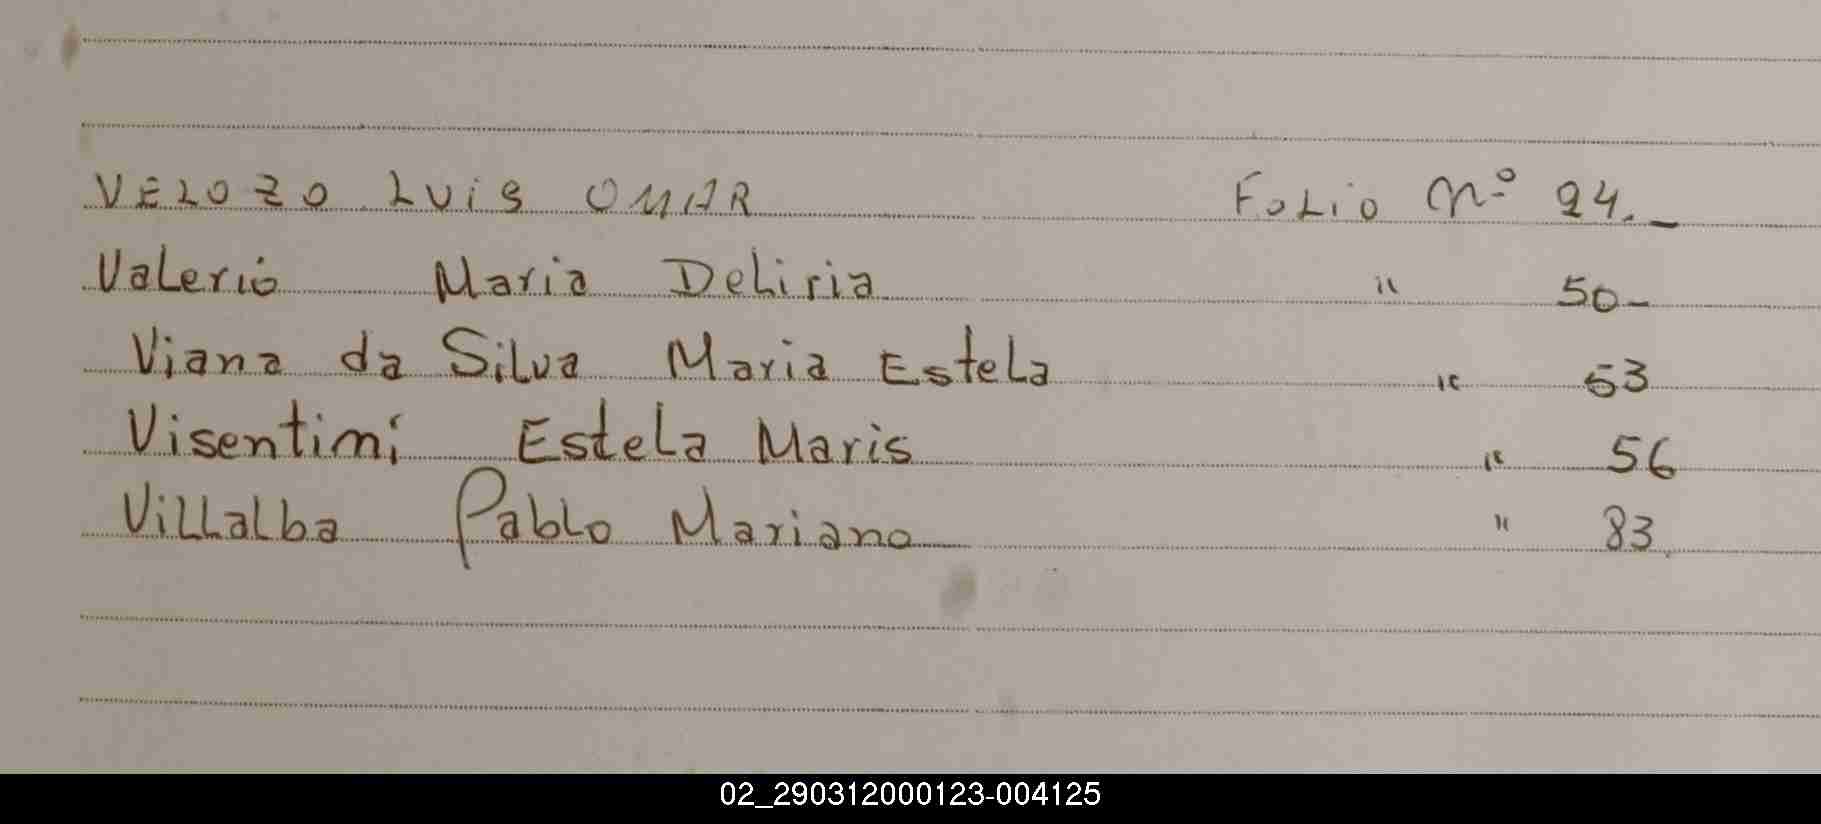 VELOZO LUiS OMAR Folio Nº 24.
Valerio Maria Deliria " 50-
Viana da Silva Maria Estela " 53
Visentini Estela Maris " 56
Villalba Pablo Mariano " 83.
02_290312000123-004125